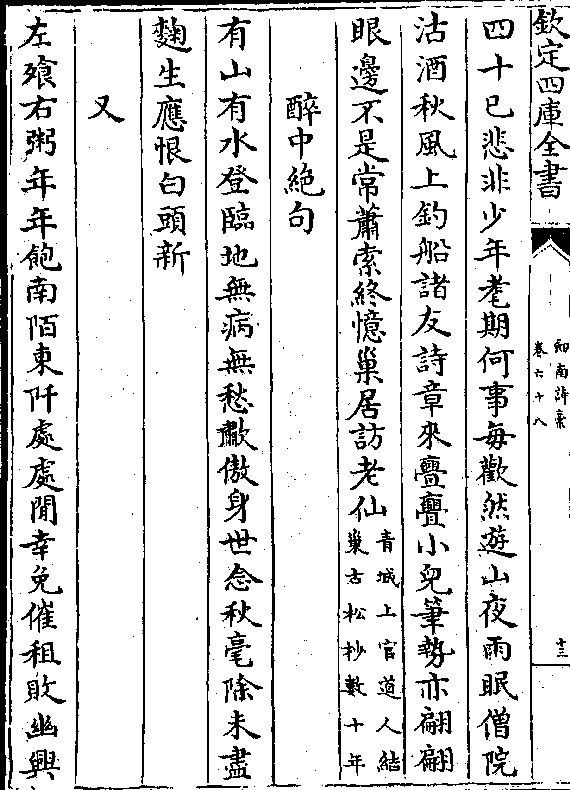 欽定四庫全書
劍南詩稾
卷六十八
十三
四十已悲非少年耄期何事每歡然遊山夜雨眠僧院
沽酒秋風上釣船諸友詩章來亹亹小兒筆勢亦翩翩
眼邊不是常蕭索終憶巢居訪老仙青城上官道人結
巢古松杪數十年
醉中絶句
有山有水登臨地無病無愁歗傲身世念秋毫除未盡
麴生應恨白頭新
又
左飱右粥年年飽南陌東阡處處閒幸免催租敗幽興